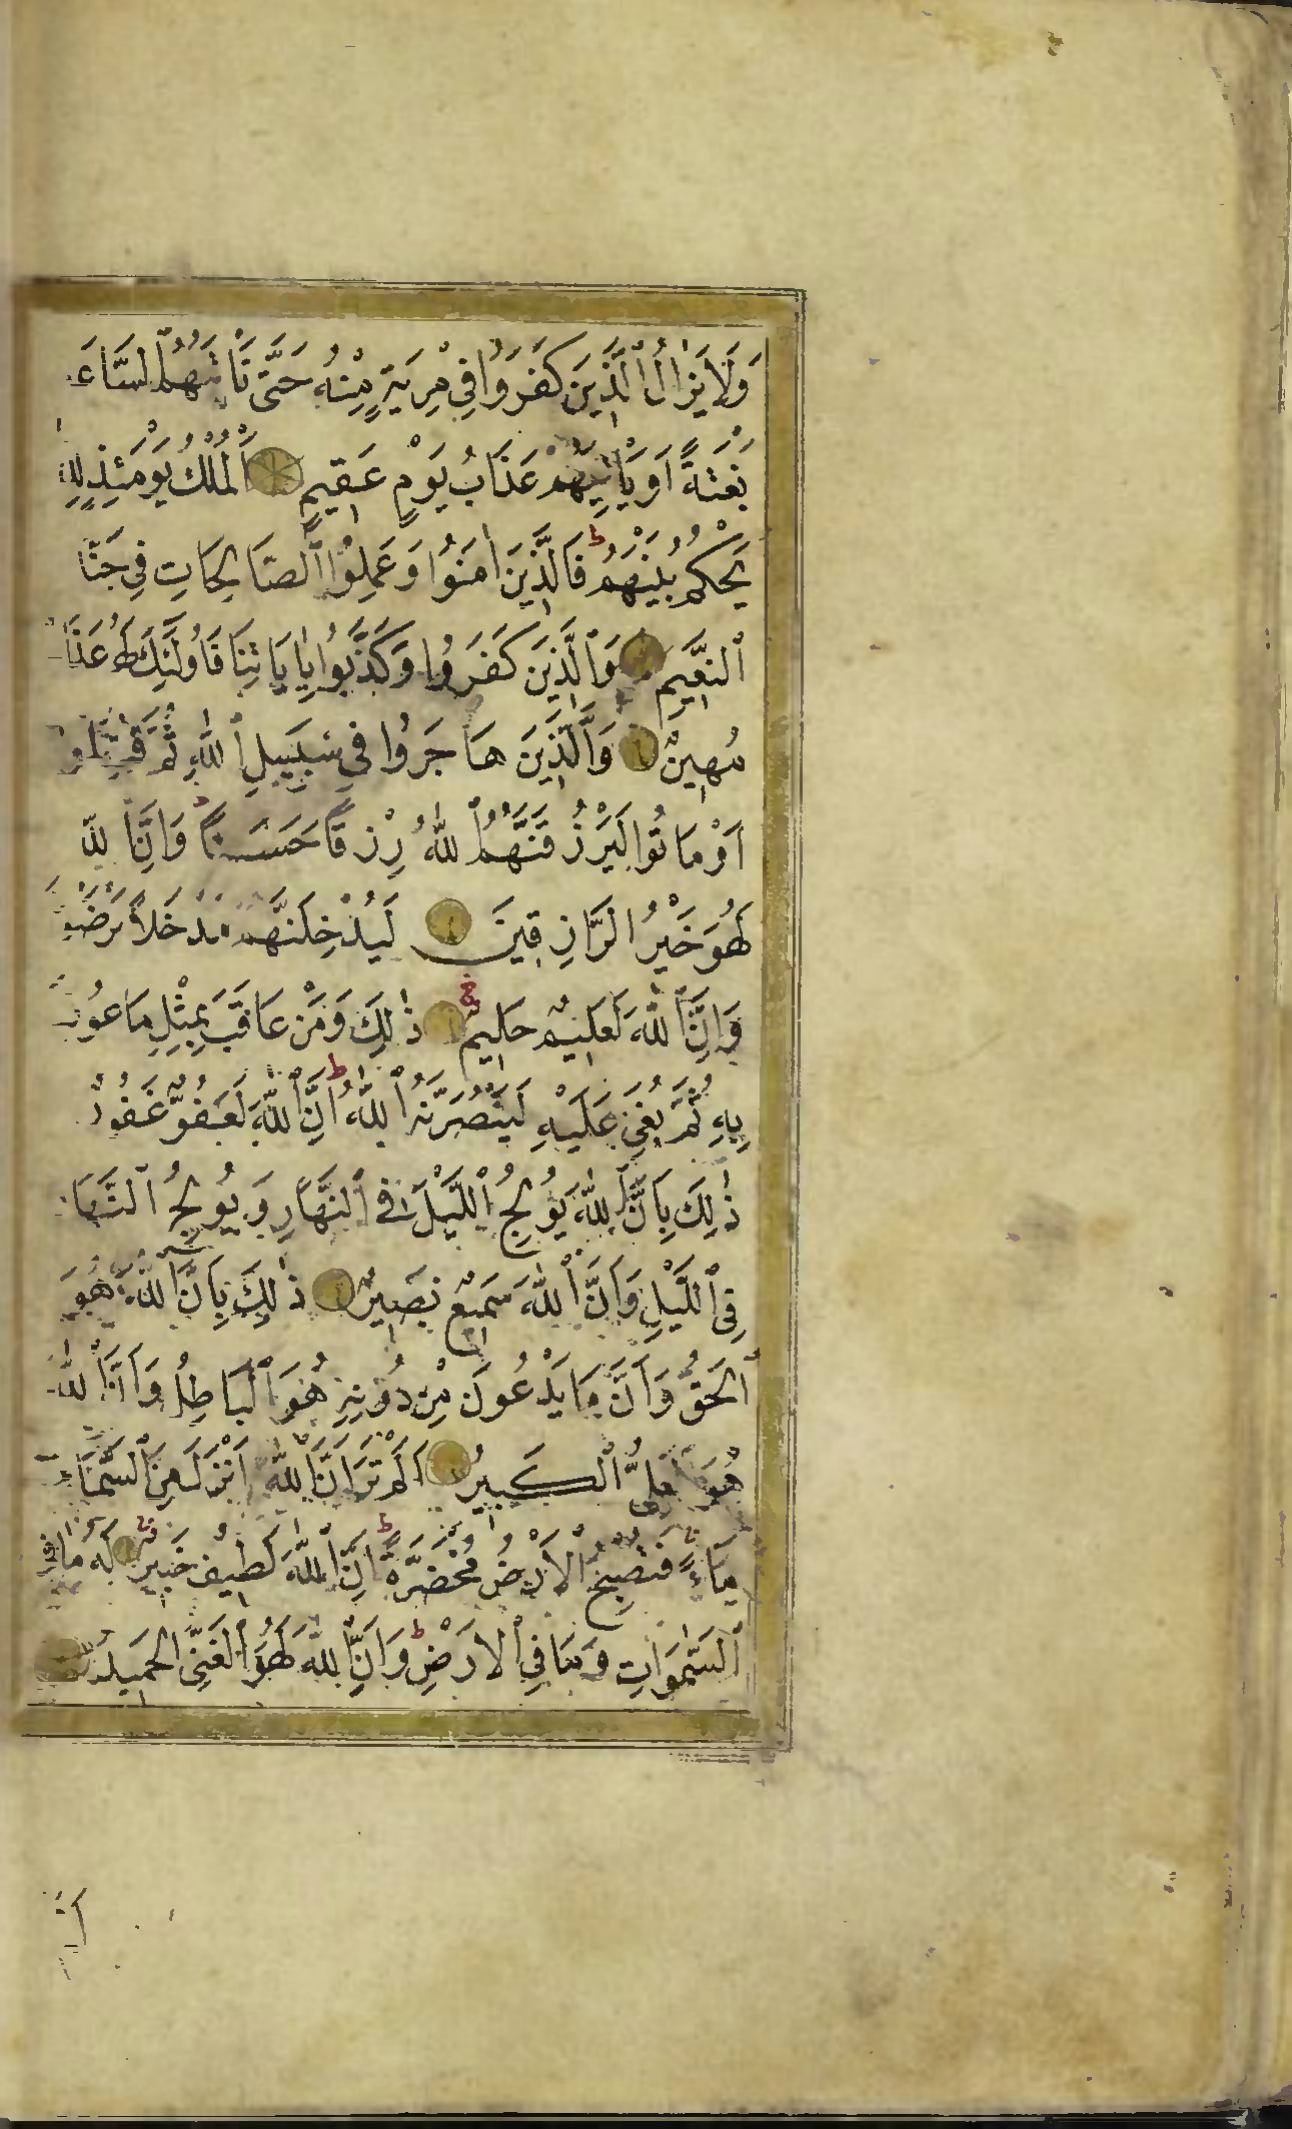 وَلَا يَزَالُ ٱلَّذِينَ كَفَرُوا فِي مِرْيَةٍ مِنْهُ حَتَّى تَأْتِيَهُمُ ٱلسَّاعَة
بَغْتَةً اَوْ يَأْتِيَهُمْ عَذَابُ يَوْمٍ عَقِيمٍ اَلْمُلْكُ يَوْمَئِذٍ لِلّٰهِ
يَحْكُمُ بَيْنَهُمْ ط فَالَّذِينَ اٰمَنُوا وَعَمِلُوا ٱلصَّالِحَاتِ فِي جَنَّا
ٱلنَّعِيمِ وَٱلَّذِينَ كَفَرُوا وَكَذَّبُوا بِاٰيَاتِنَا فَاُولٰئِكَ لَهُمْ عَذَا
مُهِينٌ وَٱلَّذِينَ هَاجَرُوا فِي سَبِيلِ ٱللّٰهِ ثُمَّ قُتِلُوا
اَوْ مَاتُوا لَيَرْزُقَنَّهُمُ ٱللّٰهُ رِزْقًا حَسَنًا ط وَاِنَّ ٱللّٰه
لَهُوَ خَيْرُ الرَّازِقِينَ لَيُدْخِلَنَّهُمْ مُدْخَلًا يَرْضَو
وَاِنَّ ٱللّٰهَ لَعَلِيمٌ حَلِيمٌ ذٰلِكَ وَمَنْ عَاقَبَ بِمِثْلِ مَا عُو
بِهِ ثُمَّ بُغِيَ عَلَيْهِ لَيَنْصُرَنَّهُ ٱللّٰهُ ط اِنَّ ٱللّٰهَ لَعَفُوٌّ غَفُورٌ
ذٰلِكَ بِاَنَّ ٱللّٰهَ يُولِجُ ٱللَّيْلَ فِي ٱلنَّهَارِ وَيُولِجُ ٱلنَّهَا
فِي ٱللَّيْلِ وَاَنَّ ٱللّٰهَ سَمِيعٌ بَصِيرٌ ذٰلِكَ بِاَنَّ ٱللّٰهَ هُوَ
ٱلْحَقُّ وَاَنَّ مَا يَدْعُونَ مِنْ دُونِهِ هُوَ ٱلْبَاطِلُ وَاَنَّ ٱللّٰه
هُوَ ٱلْعَلِيُّ ٱلْكَبِيرُ اَلَمْ تَرَ اَنَّ ٱللّٰهَ اَنْزَلَ مِنَ ٱلسَّمَاءِ
مَاءً فَتُصْبِحُ ٱلْاَرْضُ مُخْضَرَّةً ط اِنَّ ٱللّٰهَ لَطِيفٌ خَبِيرٌ لَهُ مَا فِي
ٱلسَّمٰوَاتِ وَمَا فِي ٱلْاَرْضِ ط وَاِنَّ ٱللّٰهَ لَهُوَ ٱلْغَنِيُّ الْحَمِيدُ